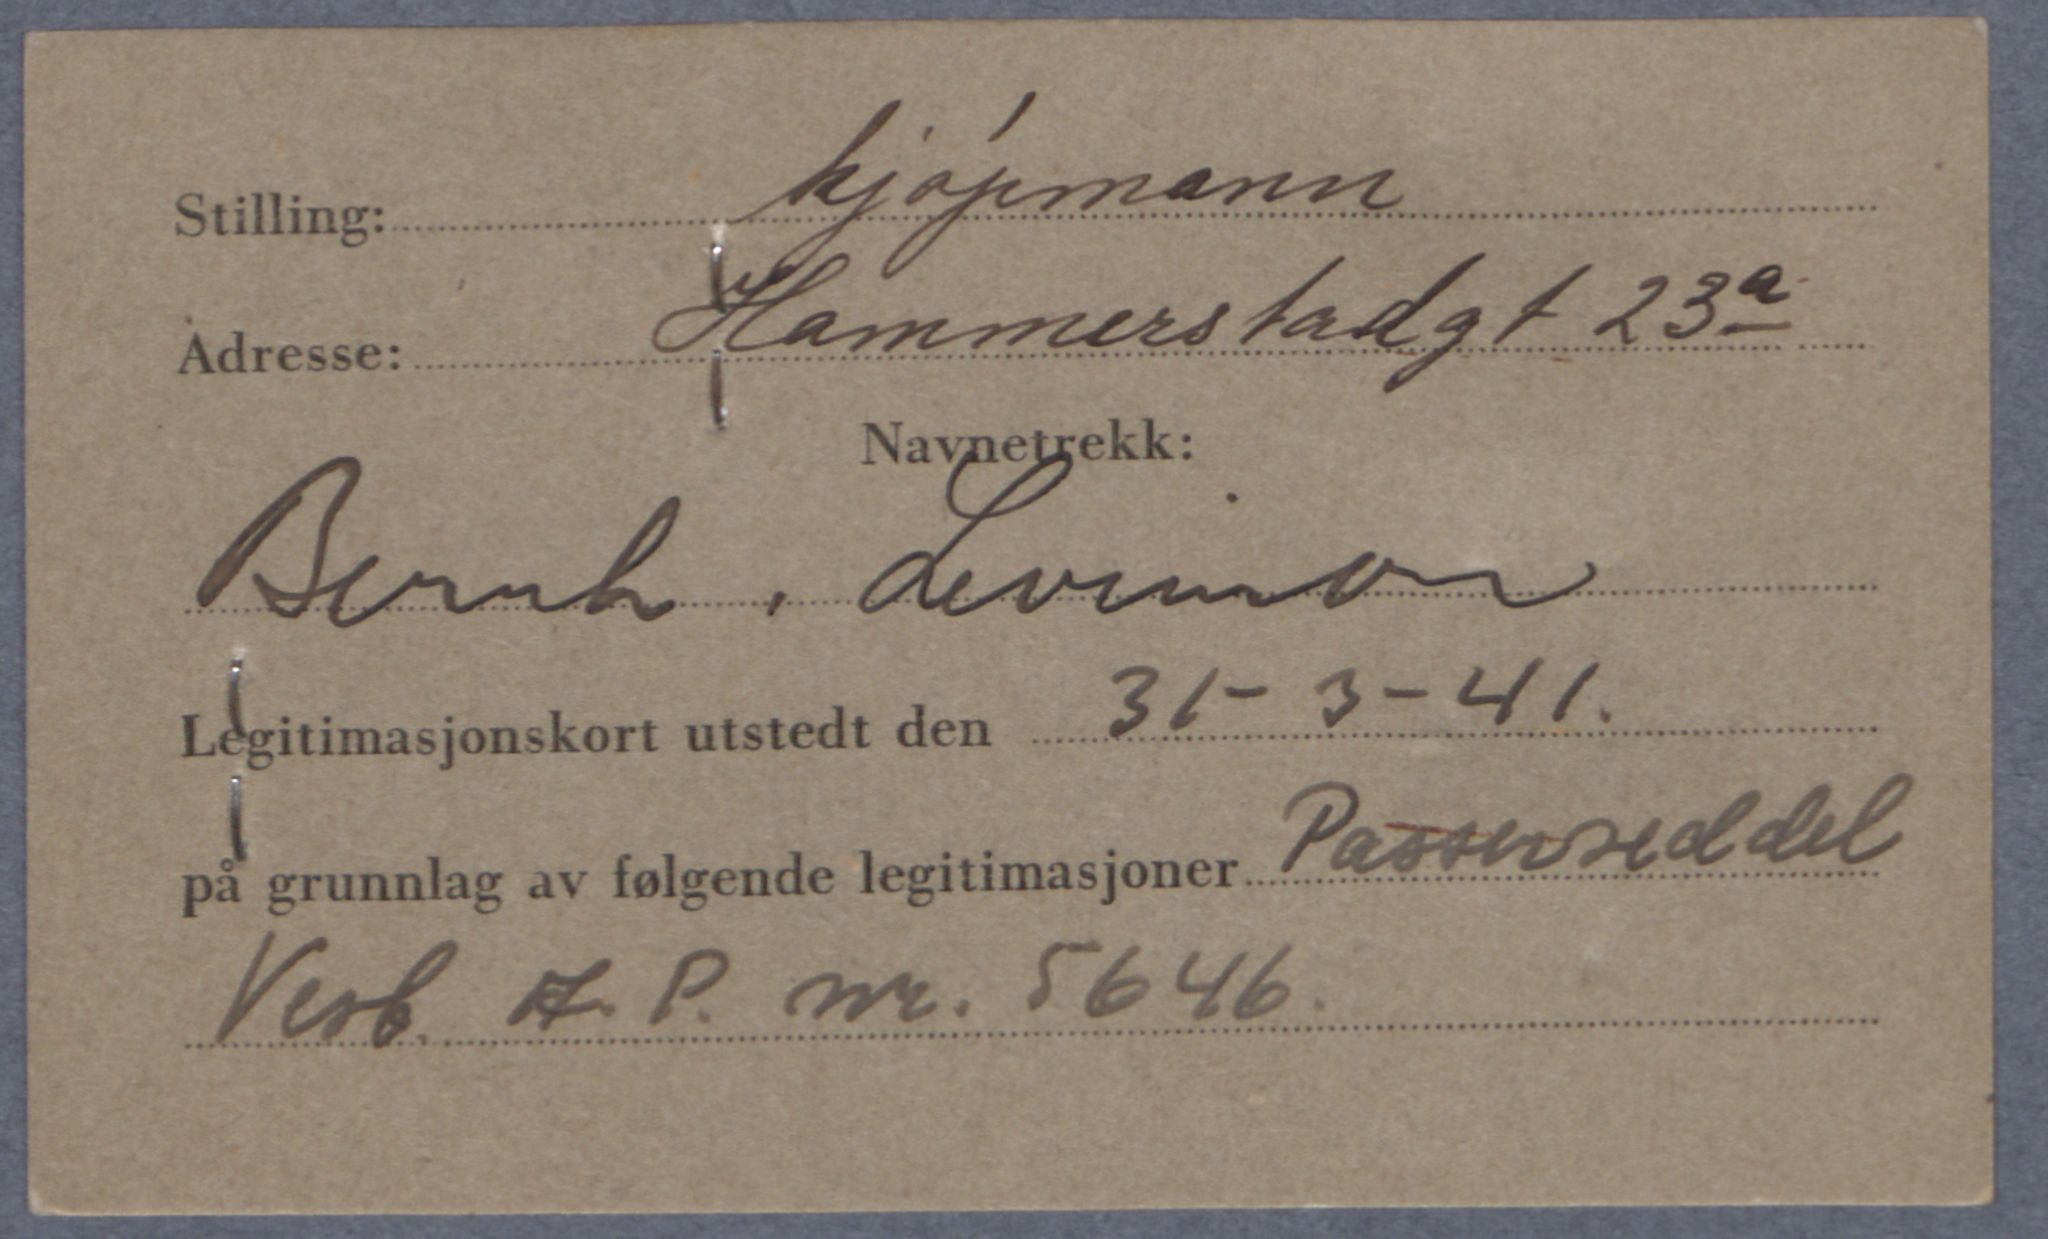 Stilling: kjøpmann
Adresse: Hammerstadgt 23a
Navnetrekk:
Bernh. Levinson
Legitimasjonskort utstedt den 31-3-41.
på grunnlag av følgende legitimasjoner Passerseddel
Vesb. A.P. nr. 5646.